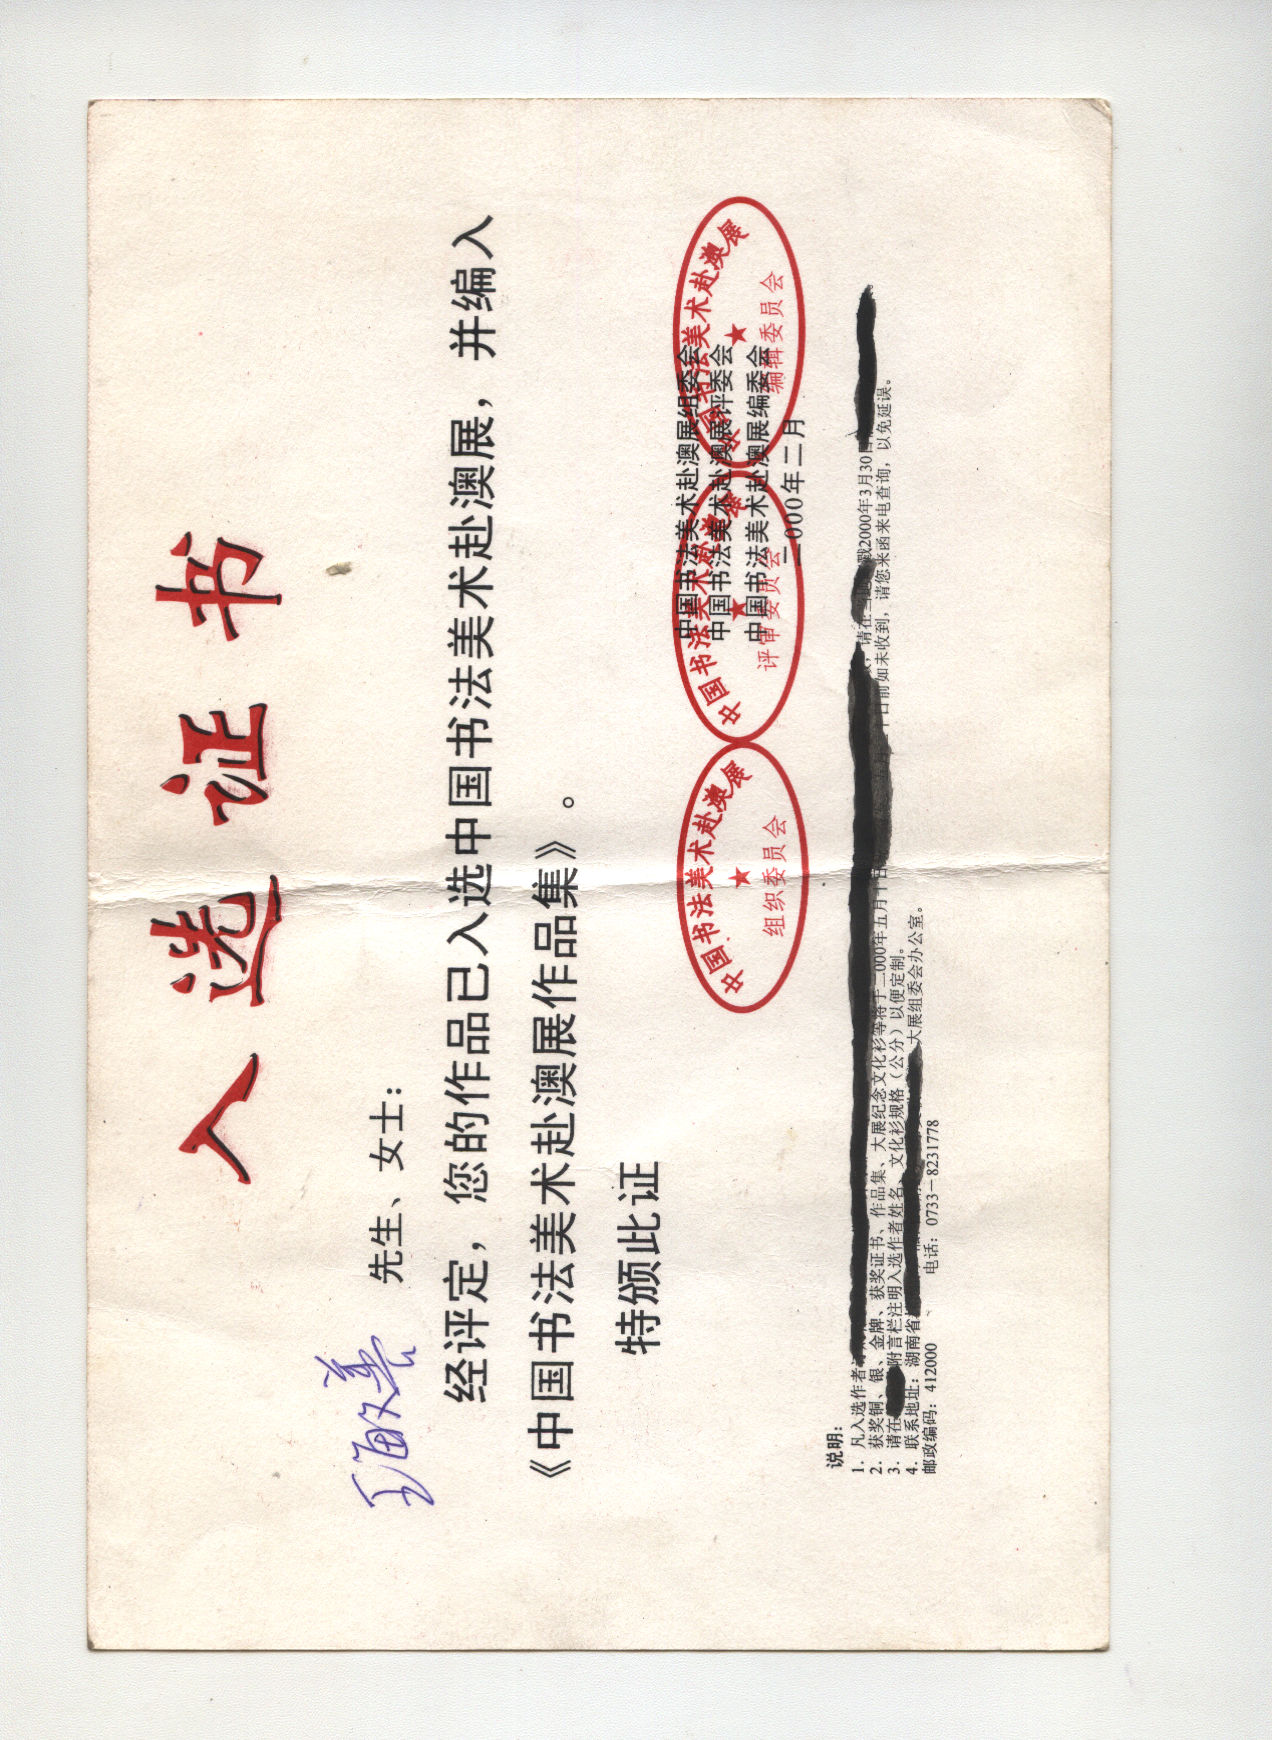 入选证书
王海文善 先生、女士：
经评定，您的作品已入选中国书法美术赴澳展，并编入
《中国书法美术赴澳展作品集》。
特颁此证
中国书法美术赴澳展
组织委员会
中国书法美术赴澳展
评审委员会
中国书法美术赴澳展
编辑委员会
中国书法美术赴澳展组委会
中国书法美术赴澳展评委会
中国书法美术赴澳展编委会
二000年二月
说明：
1. 凡入选作者 请在 2000年3月30日
2. 获奖铜、银、金牌、获奖证书、作品集、大展纪念文化衫等将于二000年五月十日 日前如未收到，请您来函来电查询，以免延误。
3. 请在 附言栏注明入选作者姓名、文化衫规格（公分）以便定制。
4. 联系地址：湖南省 大展组委会办公室。
邮政编码：412000 电话：0733－8231778